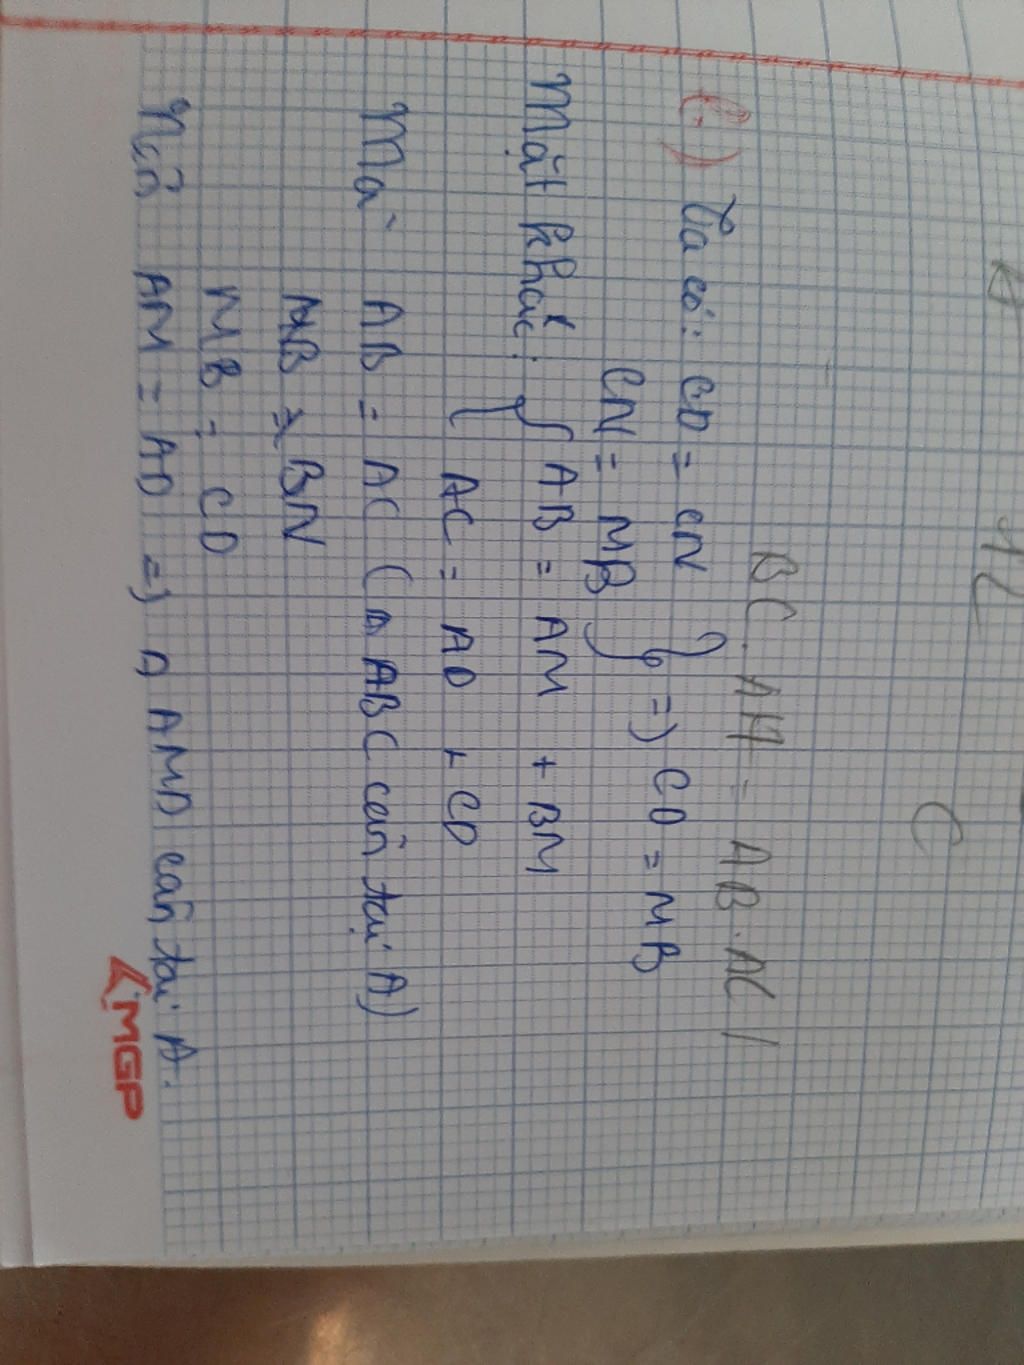 C
BC. AH = AB. AC
c) Ta có: CD = CN
CN = MB } => CD = MB
Mặt khác: { AB = AM + BM
AC = AD + CD
Mà AB = AC (△ ABC cân tại A)
MB = BN
MB = CD
Nên AM = AD => △ AMD cân tại A.
MGP